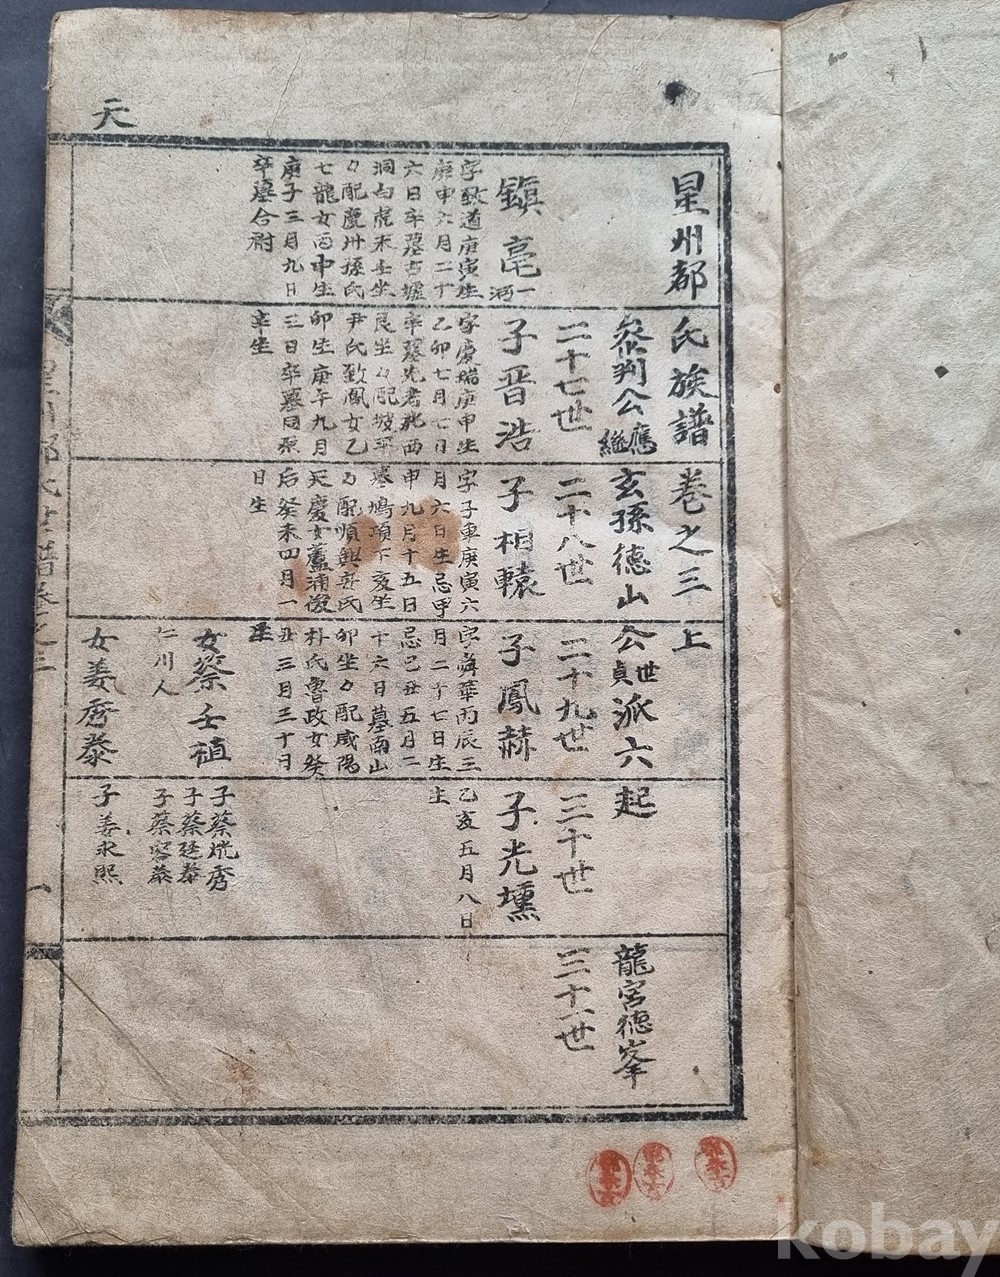 天
星州都氏族譜卷之三上
叅判公應繼玄孫德山公世貞派六起
龍宮德峯
二十七世
二十八世
二十九世
三十世
三十一世
鎭亮一河
字致道庚寅生
庚申六月二十
六日卒墓古墟
洞白虎末壬坐
々配慶州孫氏
七龍女丙申生
庚子三月九日
卒墓合祔
子晋浩
字慶瑞庚申生
乙卯七月七日
卒墓先考兆西
艮坐々配坡平
尹氏致鳳女乙
卯生庚午九月
三日卒墓同原
辛坐
子相轅
字子車庚寅六
月六日生忌甲
申九月十五日
墓鳩項下亥坐
々配順興安氏
廷慶女蘆浦后
后癸未四月一
日生
子鳳赫
字舜華丙辰三
月二十七日生
忌己丑五月二
十六日墓南山
卯坐々配咸陽
朴氏魯政女癸
丑三月三十日
生
女蔡壬植
仁川人
女姜秀泰
子光壎
乙亥五月八日
生
子蔡珖秀
子蔡廷泰
子蔡容泰
子姜永熙
kobay